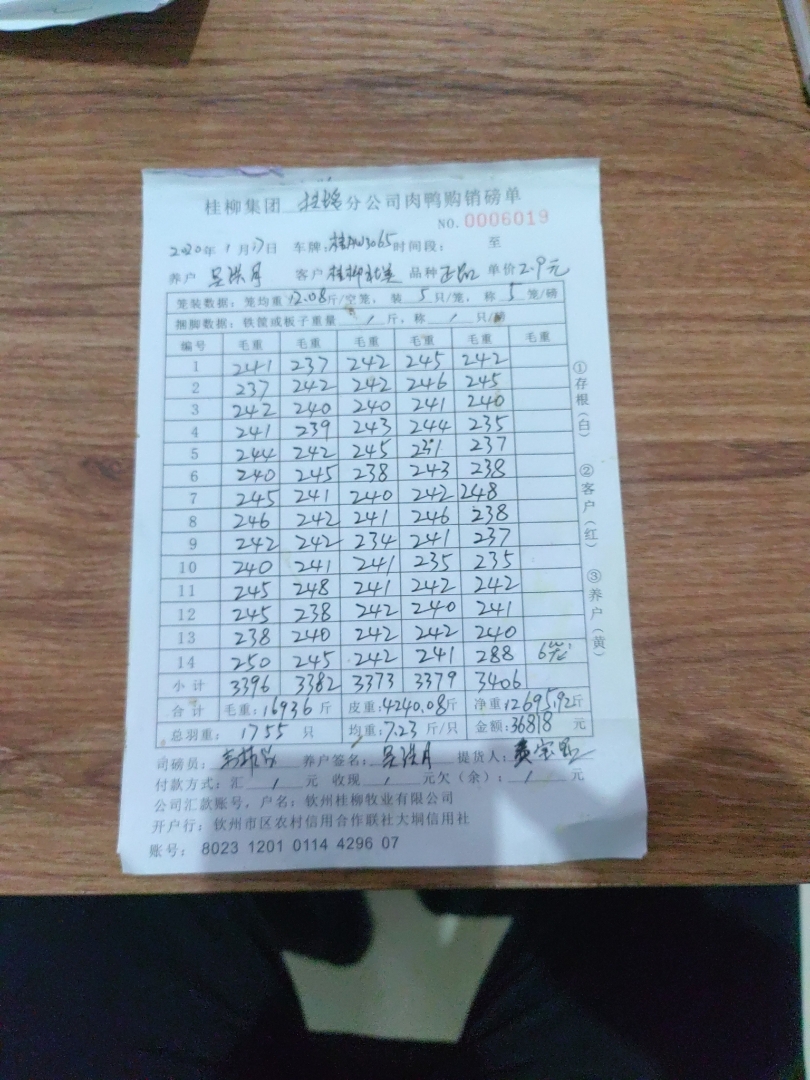 桂柳集团 分公司肉鸭购销磅单
NO.0006019
2020年1月17日 车牌: 3065 时间段: 至
养户 吴洪月 客户 桂柳 品种 正品 单价2.9元
笼装数据: 笼均重12.08斤/空笼, 装5只/笼, 称5笼/磅
捆脚数据: 铁筐或板子重量 / 斤, 称 / 只/磅
编号 毛重 毛重 毛重 毛重 毛重 毛重
1 241 237 242 245 242
2 237 242 242 246 245
3 242 240 240 241 240
4 241 239 243 244 235
5 244 242 245 231 237
6 240 245 238 243 238
7 245 241 240 242 248
8 246 242 241 246 238
9 242 242 234 241 237
10 240 241 241 235 235
11 245 248 241 242 242
12 245 238 242 240 241
13 238 240 242 242 240
14 250 245 242 241 288 6笼
小计 3396 3382 3373 3379 3406
合计 毛重:16936斤 皮重:4240.08斤 净重12695.92斤
总羽重: 1755 只 均重:7.23 斤/只 金额:36818 元
司磅员: 养户签名: 吴洪月 提货人: 黄
付款方式: 汇 / 元 收现 / 元欠(余): / 元
公司汇款账号, 户名: 钦州桂柳牧业有限公司
开户行: 钦州市区农村信用合作联社大垌信用社
账号: 8023 1201 0114 4296 07
①存根(白)
②客户(红)
③养户(黄)